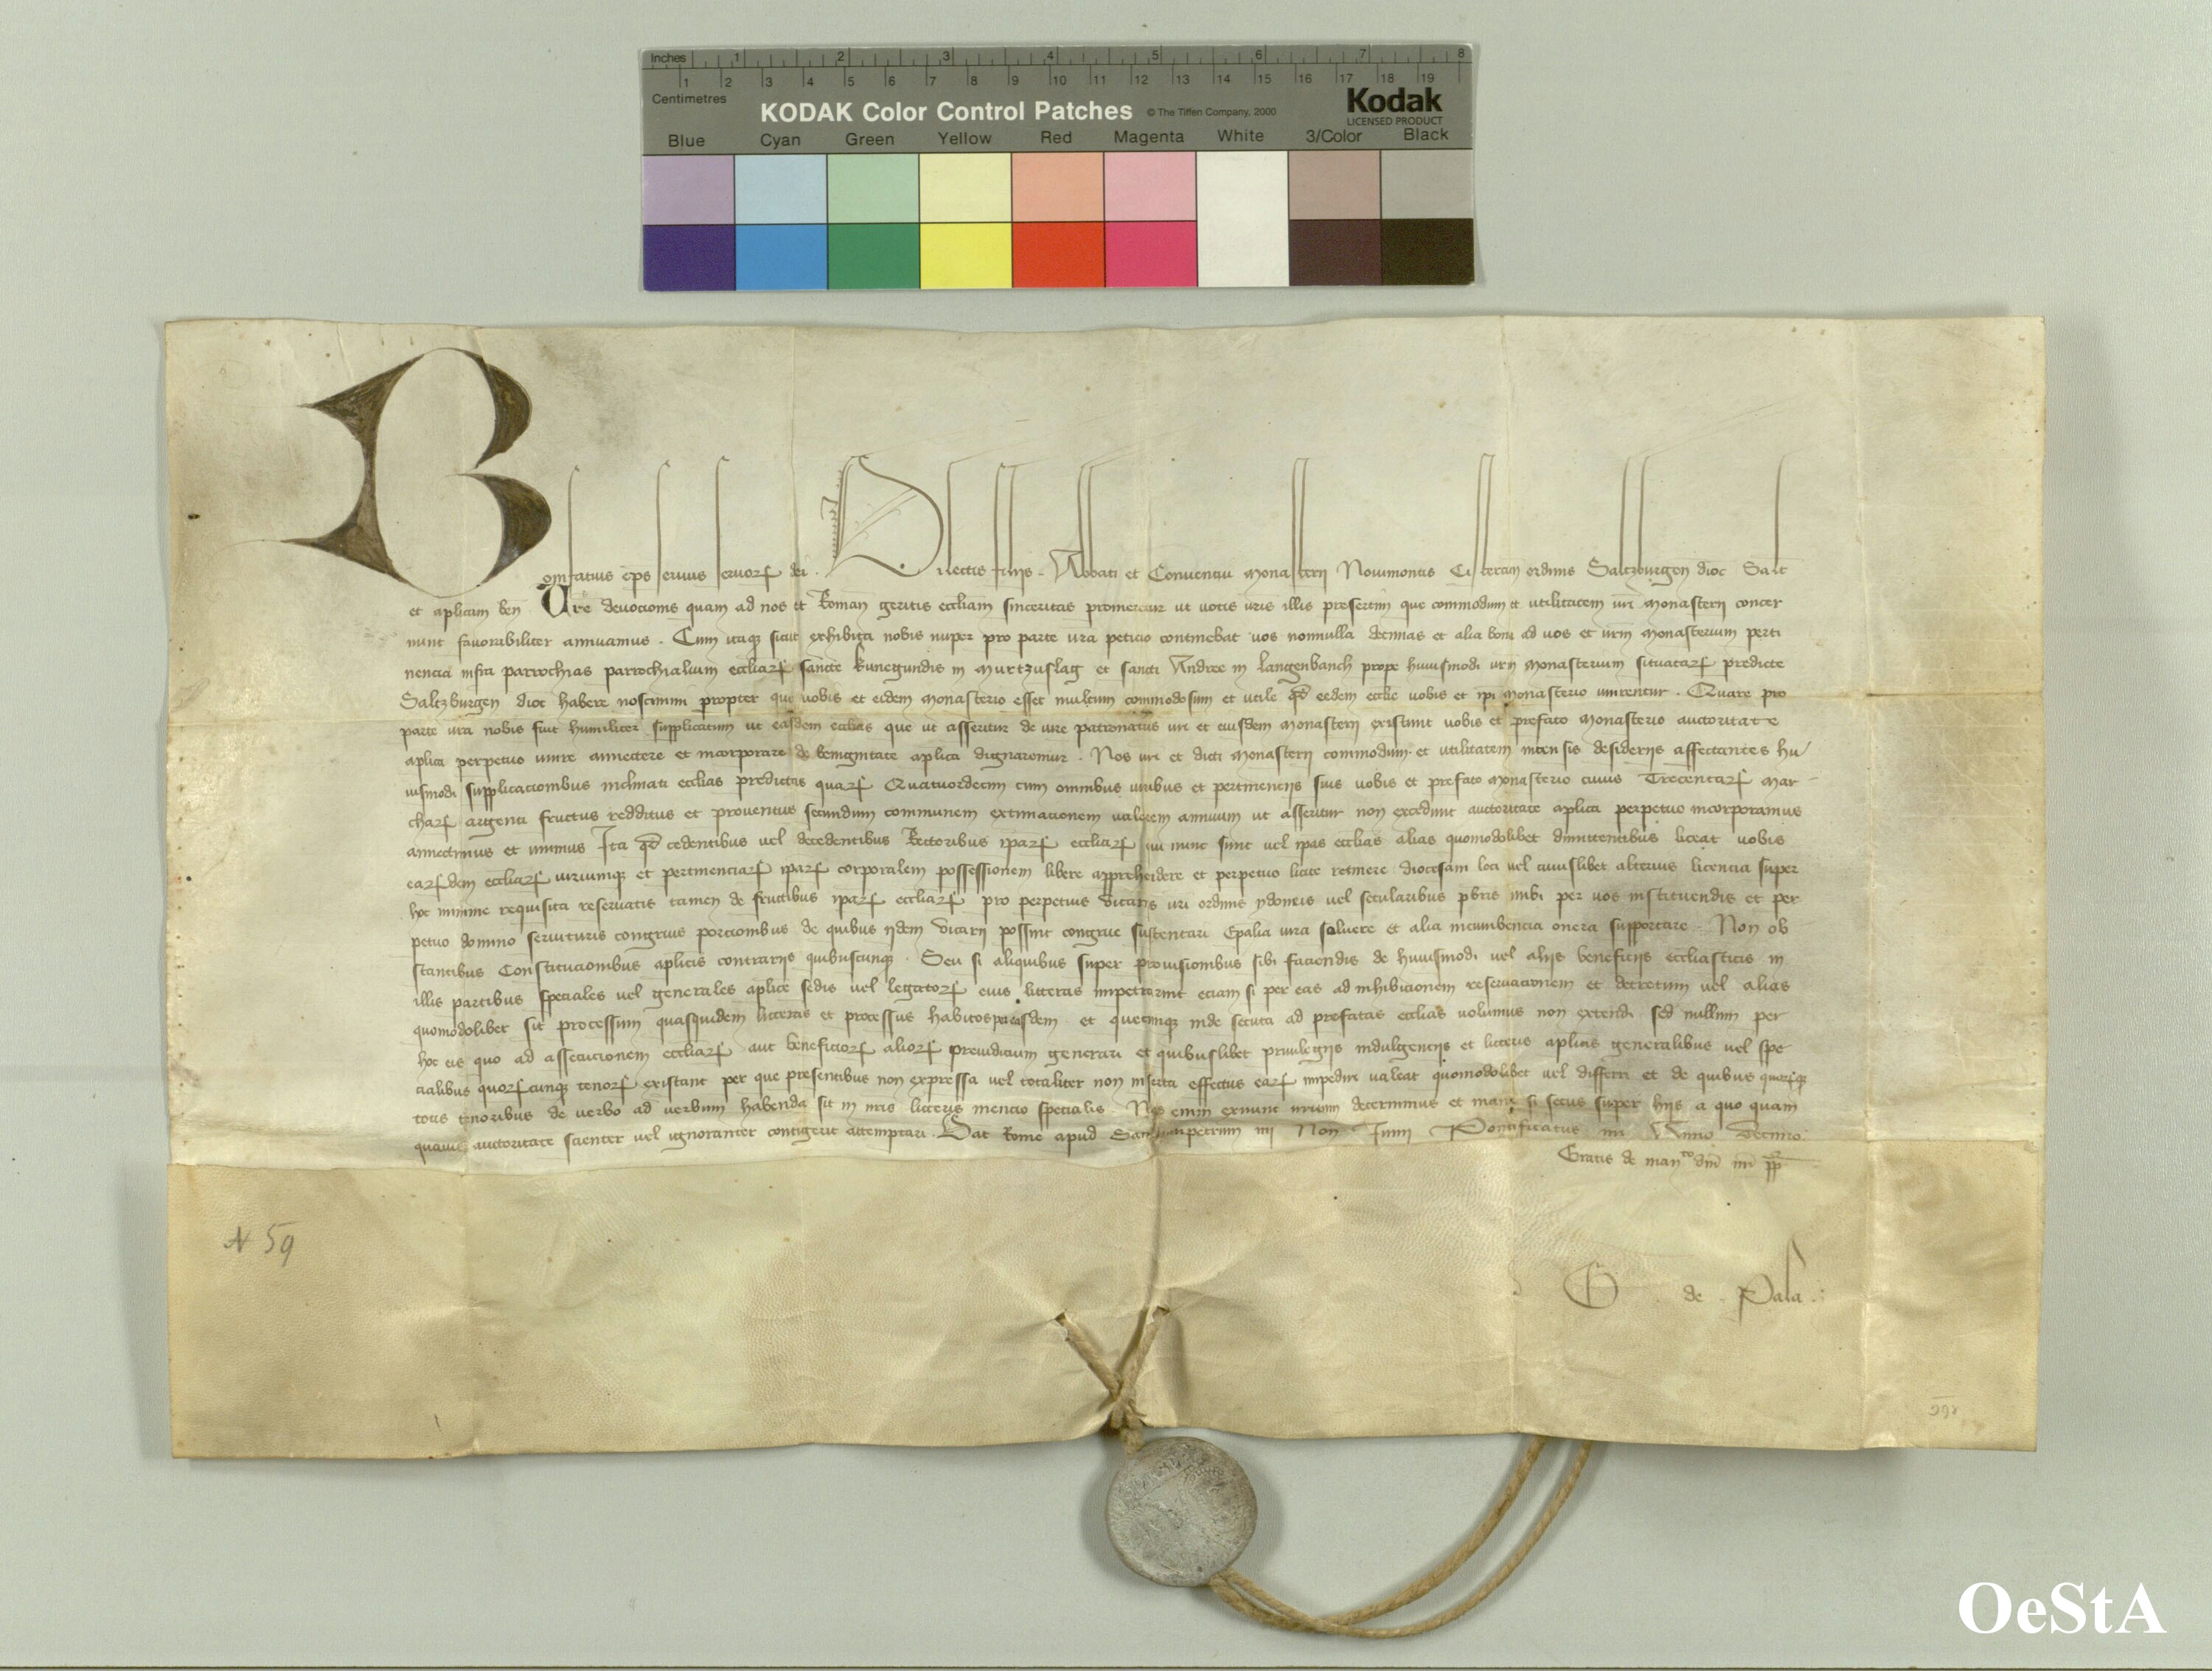 Inches 1 2 3 4 5 6 7 8
1 2 3 4 5 6 7 8 9 10 11 12 13 14 15 16 17 18 19
Centimetres
KODAK Color Control Patches © The Tiffen Company, 2000 Kodak
LICENSED PRODUCT
Blue Cyan Green Yellow Red Magenta White 3/Color Black
Bonifatius eps servus servoꝝ dei . Dilectis filiis . Abbati et Conventui Monasterii Novimontis Cistercien ordinis Saltzburgen dioc Salt
et aplicam ben Vre devocionis quam ad nos et Roman geritis eccliam sinceritas promeretur ut votis vris illis presertim que commodum et utilitatem vri Monasterii concer
nunt favorabiliter annuamus . Cum itaqꝫ sicut exhibita nobis nuper pro parte vra peticio continebat vos nonnulla decimas et alia bona ad vos et vrm Monasterium perti
nencia infra parrochias parrochialium eccliaꝝ sancte Kunegundis in Murtzuslag et sancti Andree in Langenbanch prope huiusmodi vrm Monasterium situataꝝ predicte
Saltzburgen dioc habere noscimini propter que vobis et eidem Monasterio esset multum commodosum et utile qd eedem ecclie vobis et ipi Monasterio unirentur . Quare pro
parte vra nobis fuit humiliter supplicatum ut easdem ecclias que ut asseritur de iure patronatus vri et eiusdem Monasterii existunt vobis et prefato Monasterio auctoritate
aplica perpetuo unire annectere et incorporare de benignitate aplica dignaremur . Nos vri et dicti Monasterii commodum et utilitatem intensis desideriis affectantes hu
iusmodi supplicacionibus inclinati ecclias predictas quaꝝ Quatuordecim cum omnibus iuribus et pertinenciis suis vobis et prefato Monasterio cuius Trecentaꝝ Mar
chaꝝ argenti fructus redditus et proventus secundum communem extimacionem valorem annuum ut asseritur non excedunt auctoritate aplica perpetuo incorporamus
annectimus et unimus Ita qd cedentibus vel decedentibus Rectoribus ipaꝝ eccliaꝝ qui nunc sunt vel ipas ecclias alias quomodolibet dimittentibus liceat vobis
eaꝝdem eccliaꝝ iuriumqꝫ et pertinenciaꝝ ipaꝝ corporalem possessionem libere apprehendere et perpetuo licite retinere diocesani loci vel cuiuslibet alterius licencia super
hoc minime requisita reservatis tamen de fructibus ipaꝝ eccliaꝝ pro perpetuis Vicariis vri ordinis ydoneis vel secularibus pbris inibi per vos instituendis et per
petuo domino servituris congruis porcionibus de quibus iidem Vicarii possint congrue sustentari Epalia iura solvere et alia incumbencia onera supportare . Non ob
stantibus Constitucionibus aplicis contrariis quibuscunqꝫ . Seu si aliquibus super provisionibus sibi faciendis de huiusmodi vel aliis beneficiis ecclesiasticis in
illis partibus speciales vel generales aplice sedis vel legatoꝝ eius litteras impetrarint eciam si per eas ad inhibicionem reservacionem et decretum vel alias
quomodolibet sit processum quasquidem litteras et processus habitos per easdem et quecunqꝫ inde secuta ad prefatas ecclias volumus non extendi sed nullum per
hoc eis quo ad assecucionem eccliaꝝ aut beneficioꝝ alioꝝ preiudicium generari et quibuslibet privilegiis indulgenciis et litteris aplicis generalibus vel spe
cialibus quoꝝcunqꝫ tenoꝝ existant per que presentibus non expressa vel totaliter non inserta effectus eaꝝ impediri valeat quomodolibet vel differri et de quibus quaꝝqꝫ
totis tenoribus de verbo ad verbum habenda sit in nris litteris mencio specialis . Nos enim exnunc irritum decernimus et inane si secus super hiis a quo quam
quavis auctoritate scienter vel ignoranter contigerit attemptari . Dat Rome apud Sanctumpetrum iiii Non Junii Pontificatus nri Anno Decimo
Gratis de manto dni nri pp
N 59
G . de . Pala .
OeStA